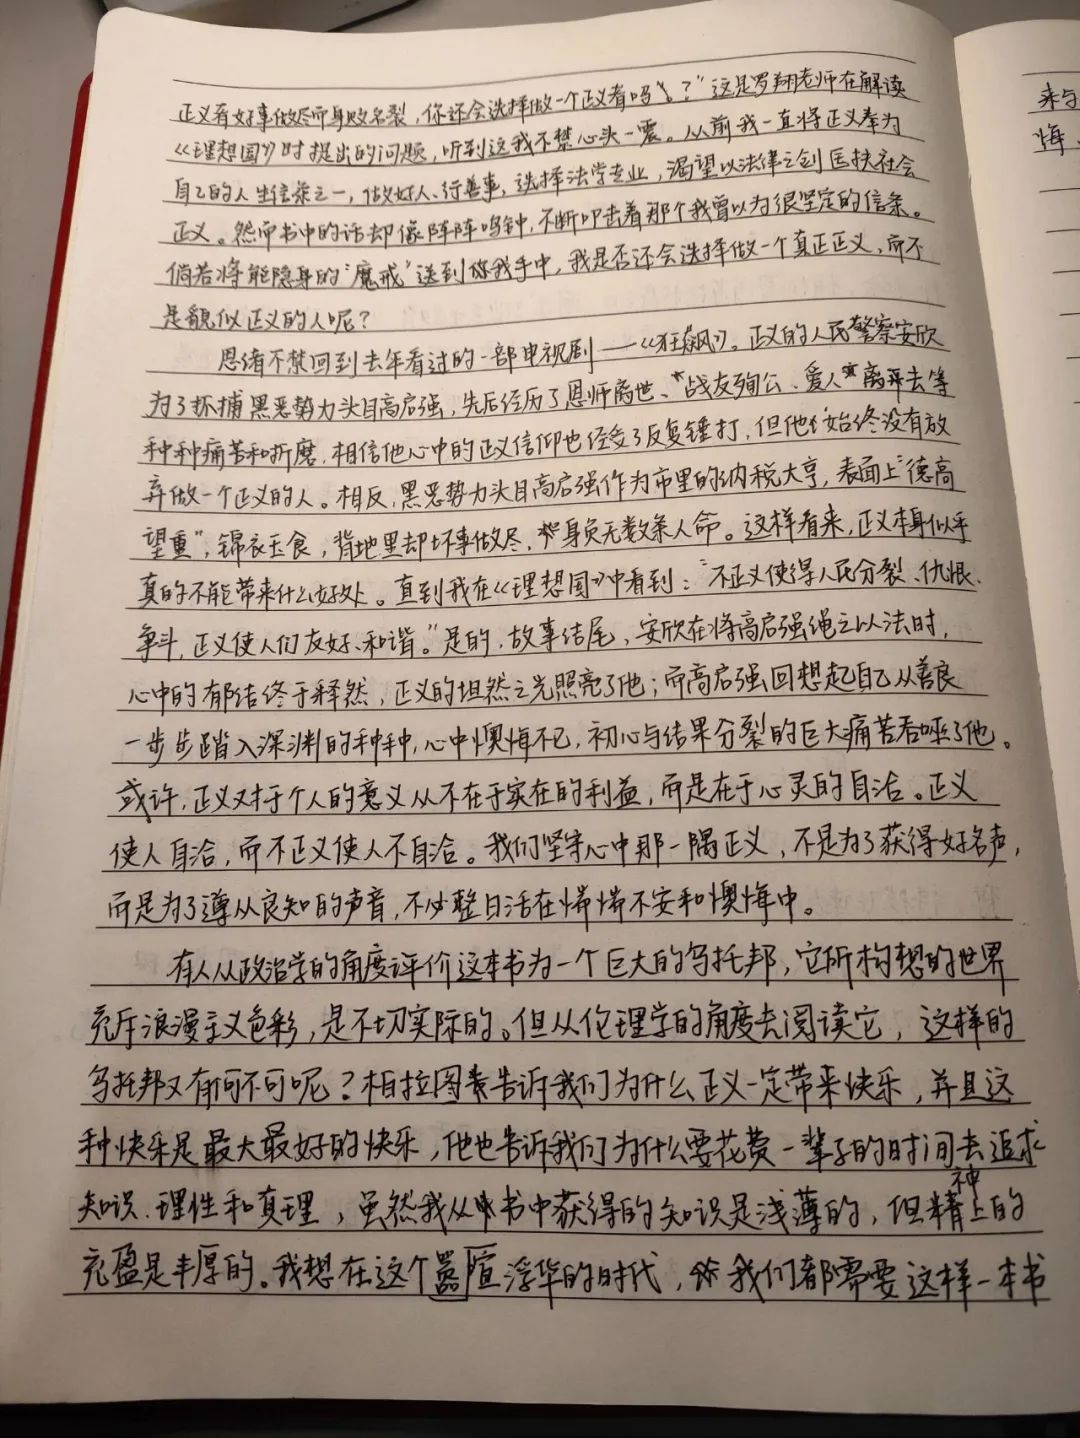 正义者好事做尽而身败名裂，你还会选择做一个正义者吗？”这是罗翔老师在解读
《理想国》时提出的问题，听到这我不禁心头一震。从前我一直将正义奉为
自己的人生信条之一，做好人、行善事，选择法学专业，渴望以法律之剑匡扶社会
正义。然而书中的话却像阵阵鸣钟，不断叩击着那个我曾以为很坚定的信条。
倘若将能隐身的“魔戒”送到你我手中，我是否还会选择做一个真正正义，而不
是貌似正义的人呢？
思绪不禁回到去年看过的一部电视剧——《狂飙》。正义的人民警察安欣
为了抓捕黑恶势力头目高启强，先后经历了恩师离世、战友殉公、爱人离弃去等
种种痛苦和折磨，相信他心中的正义信仰也经受了反复锤打，但他始终没有放
弃做一个正义的人。相反，黑恶势力头目高启强作为市里的纳税大亨，表面上“德高
望重”，锦衣玉食，背地里却坏事做尽，身负无数条人命。这样看来，正义本身似乎
真的不能带来什么好处。直到我在《理想国》中看到：“不正义使得人民分裂、仇恨、
争斗，正义使人们友好、和谐。”是的，故事结尾，安欣在将高启强绳之以法时，
心中的郁结终于释然，正义的坦然之光照亮了他；而高启强回想起自己从善良
一步步踏入深渊的种种，心中懊悔不已，初心与结果分裂的巨大痛苦吞噬了他。
或许，正义对于个人的意义从不在于实在的利益，而是在于心灵的自洽。正义
使人自洽，而不正义使人不自洽。我们坚守心中那一隅正义，不是为了获得好名声，
而是为了遵从良知的声音，不必整日活在惴惴不安和懊悔中。
有人从政治学的角度评价这本书为一个巨大的乌托邦，它所构想的世界
充斥浪漫主义色彩，是不切实际的。但从伦理学的角度去阅读它，这样的
乌托邦又有何不可呢？柏拉图告诉我们为什么正义一定带来快乐，并且这
种快乐是最大最好的快乐，他也告诉我们为什么要花费一辈子的时间去追求
知识、理性和真理，虽然我从书中获得的知识是浅薄的，但精神上的
充盈是丰厚的。我想在这个嚣喧浮华的时代，我们都需要这样一本书
来与
悔、